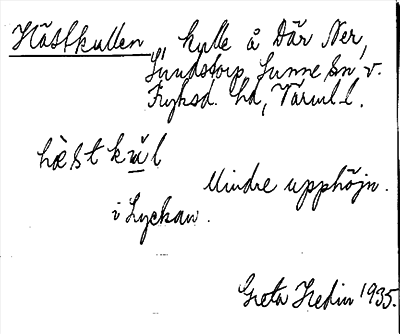 Hästkullen, kulle å Där Ner,
Sundstorp Sunne sn v.
Fryksd. hd, Värml l.
hὲstkul
Mindre upphöjn.
i Lyckan.
Greta Hedin 1935.